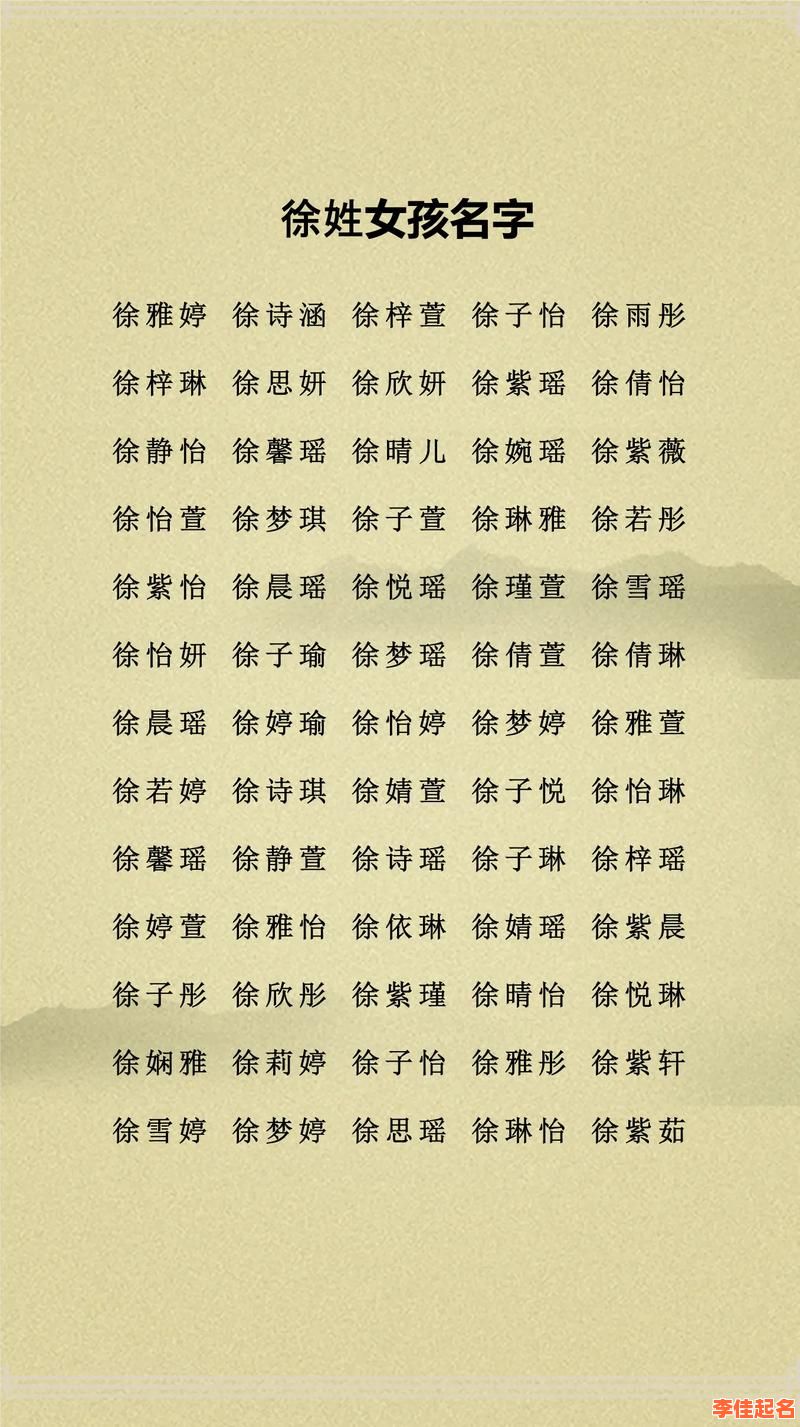 徐姓女孩名字
徐雅婷 徐诗涵 徐梓萱 徐子怡 徐雨彤
徐梓琳 徐思妍 徐欣妍 徐紫瑶 徐倩怡
徐静怡 徐馨瑶 徐晴儿 徐婉瑶 徐紫薇
徐怡萱 徐梦琪 徐子萱 徐琳雅 徐若彤
徐紫怡 徐晨瑶 徐悦瑶 徐瑾萱 徐雪瑶
徐怡妍 徐子瑜 徐梦瑶 徐倩萱 徐倩琳
徐晨瑶 徐婷瑜 徐怡婷 徐梦婷 徐雅萱
徐若婷 徐诗琪 徐婧萱 徐子悦 徐怡琳
徐馨瑶 徐静萱 徐诗瑶 徐子琳 徐梓瑶
徐婷萱 徐雅怡 徐依琳 徐婧瑶 徐紫晨
徐子彤 徐欣彤 徐紫瑾 徐晴怡 徐悦琳
徐娴雅 徐莉婷 徐子怡 徐雅彤 徐紫轩
徐雪婷 徐梦婷 徐思瑶 徐琳怡 徐紫茹
李佳起名